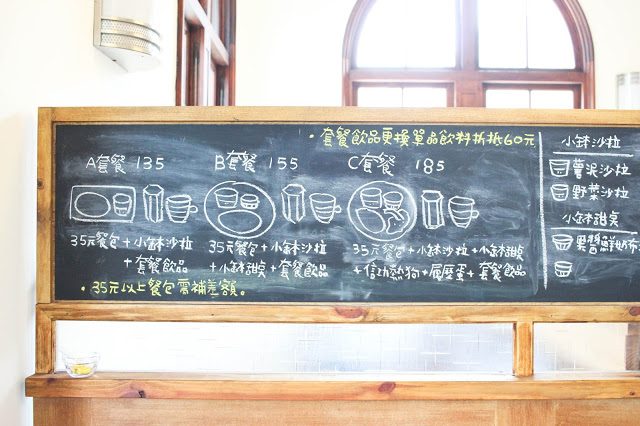 ・套餐飲品更換單品飲料折抵60元
A套餐 135
35元餐包+小缽沙拉
+套餐飲品
B套餐 155
35元餐包+小缽沙拉
+小缽甜点+套餐飲品
C套餐 185
35元餐包+小缽沙拉+小缽甜点
+信功熱狗+風壓蛋+套餐飲品
・35元以上餐包需補差額。
小缽沙拉
薯泥沙拉
野菜沙拉
小缽甜点
果醬鮮奶布